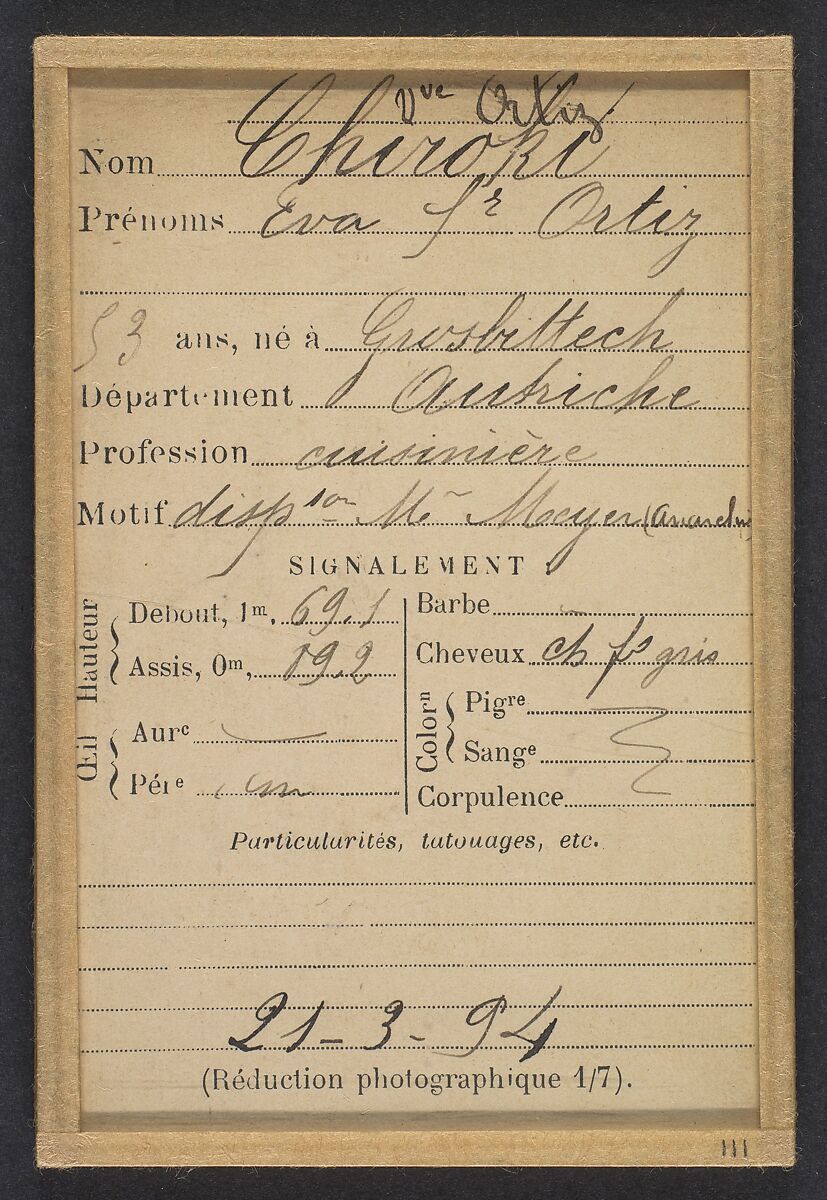 Vve Ortiz
Nom Chiroki
Prénoms Eva fe Ortiz
53 ans, né à Grosbittech
Département Autriche
Profession cuisinière
Motif dispon Mr Meyer (Anarchie)
SIGNALEMENT
Hauteur
Debout, 1m, 69,1
Assis, 0m, 89,2
Œil
Aurc
Pére
Barbe
Cheveux ch fs gris
Colorn
Pigre
Sange
Corpulence
Particularités, tatouages, etc.
21-3-94
(Réduction photographique 1/7).
III